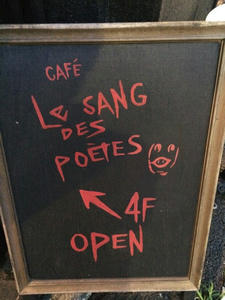 CAFÉ
Le SANG
DES
POÈTES
4F
OPEN